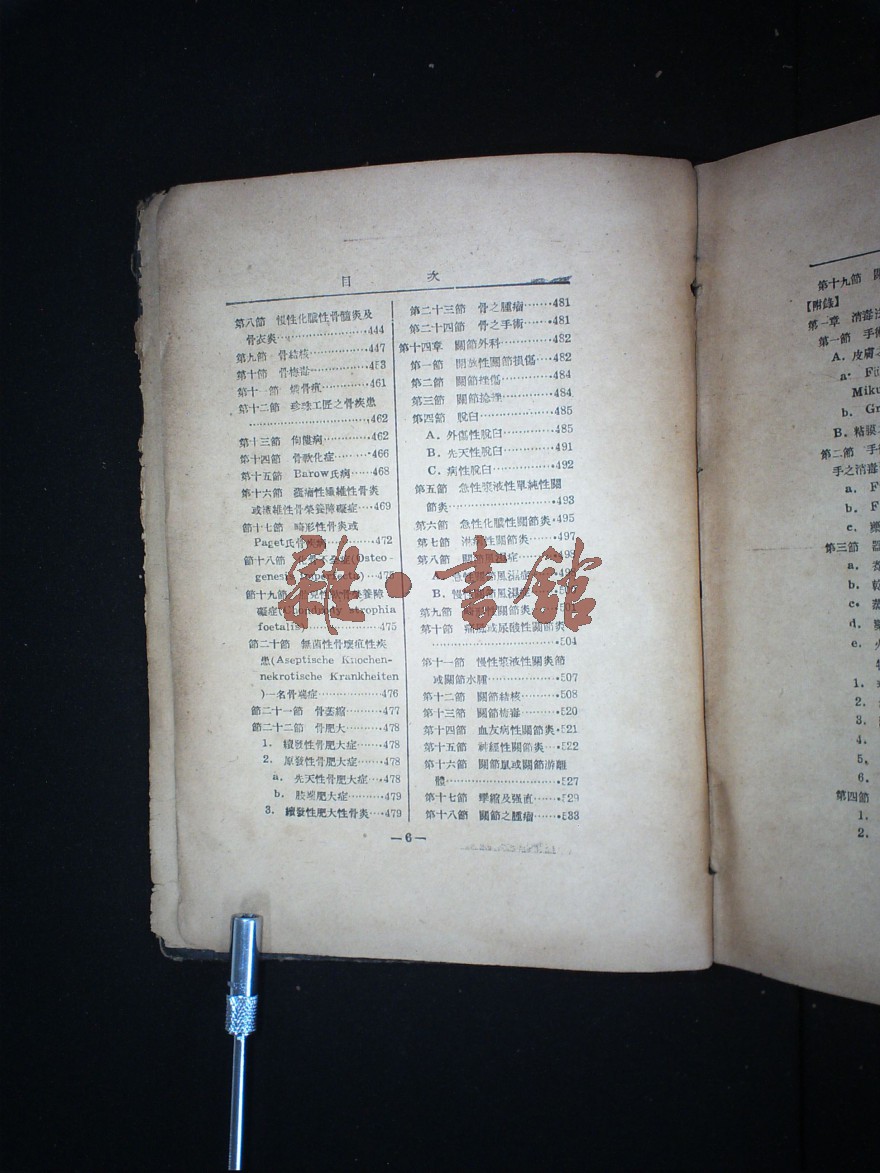 目 次
第八節 慢性化膿性骨髓炎及
骨衣炎············444
第九節 骨結核············447
第十節 骨梅毒············453
第十一節 燐骨疽·········461
第十二節 珍珠工匠之骨疾患
························,462
第十三節 佝僂病·········462
第十四節 骨軟化症······466
第十五節 Barow氏病·····468
第十六節 性纖維性骨炎
或纖維性骨榮養障礙症···469
節十七節 畸形性骨炎或
Paget氏骨疾病·········472
節十八節 (Osteo-
genesis imperfecta)
節十九節 骨榮養障
礙症(Chondrody strophia
foetalis)············475
節二十節 無菌性骨壞疽性疾
患(Aseptische Knochen-
nekrotische Krankheiten
)一名骨端症·········476
節二十一節 骨萎縮·······477
節二十二節 骨肥大·······478
1. 續發性骨肥大症······478
2. 原發性骨肥大症······478
a. 先天性骨肥大症···478
b. 肢端肥大症·········479
3. 續發性肥大性骨炎···479
第二十三節 骨之腫瘤·······481
第二十四節 骨之手術·······481
第十四章 關節外科·········482
第一節 開放性關節損傷···482
第二節 關節挫傷·········484
第三節 關節捻挫·········484
第四節 脫臼············485
A. 外傷性脫臼·········485
B. 先天性脫臼·········491
C. 病性脫臼·········492
第五節 急性漿液性單純性關
節炎············493
第六節 急性化膿性關節炎·495
第七節 淋疾性關節炎·····497
第八節 關節風濕症
A. 急性關節風濕症
B. 慢性關節風濕症
第九節 關節炎
第十節 痛風或尿酸性關節炎
························504
第十一節 慢性漿液性關炎節
或關節水腫·········507
第十二節 關節結核······508
第十三節 關節梅毒······520
第十四節 血友病性關節炎·521
第十五節 神經性關節炎···522
第十六節 關節鼠或關節游離
體··················527
第十七節 攣縮及强直······529
第十八節 關節之腫瘤······533
—6—
雜·書館
第十九節
【附錄】
第一章 消毒
第一節 手
A. 皮膚
a·
Miku
b. Gr
B. 粘膜
第二節 手
手之消毒
a. F
b. F
c.
第三節 器
a.
b.
c.
d.
e.
1.
2.
3.
4.
5.
6.
第四節
1.
2.